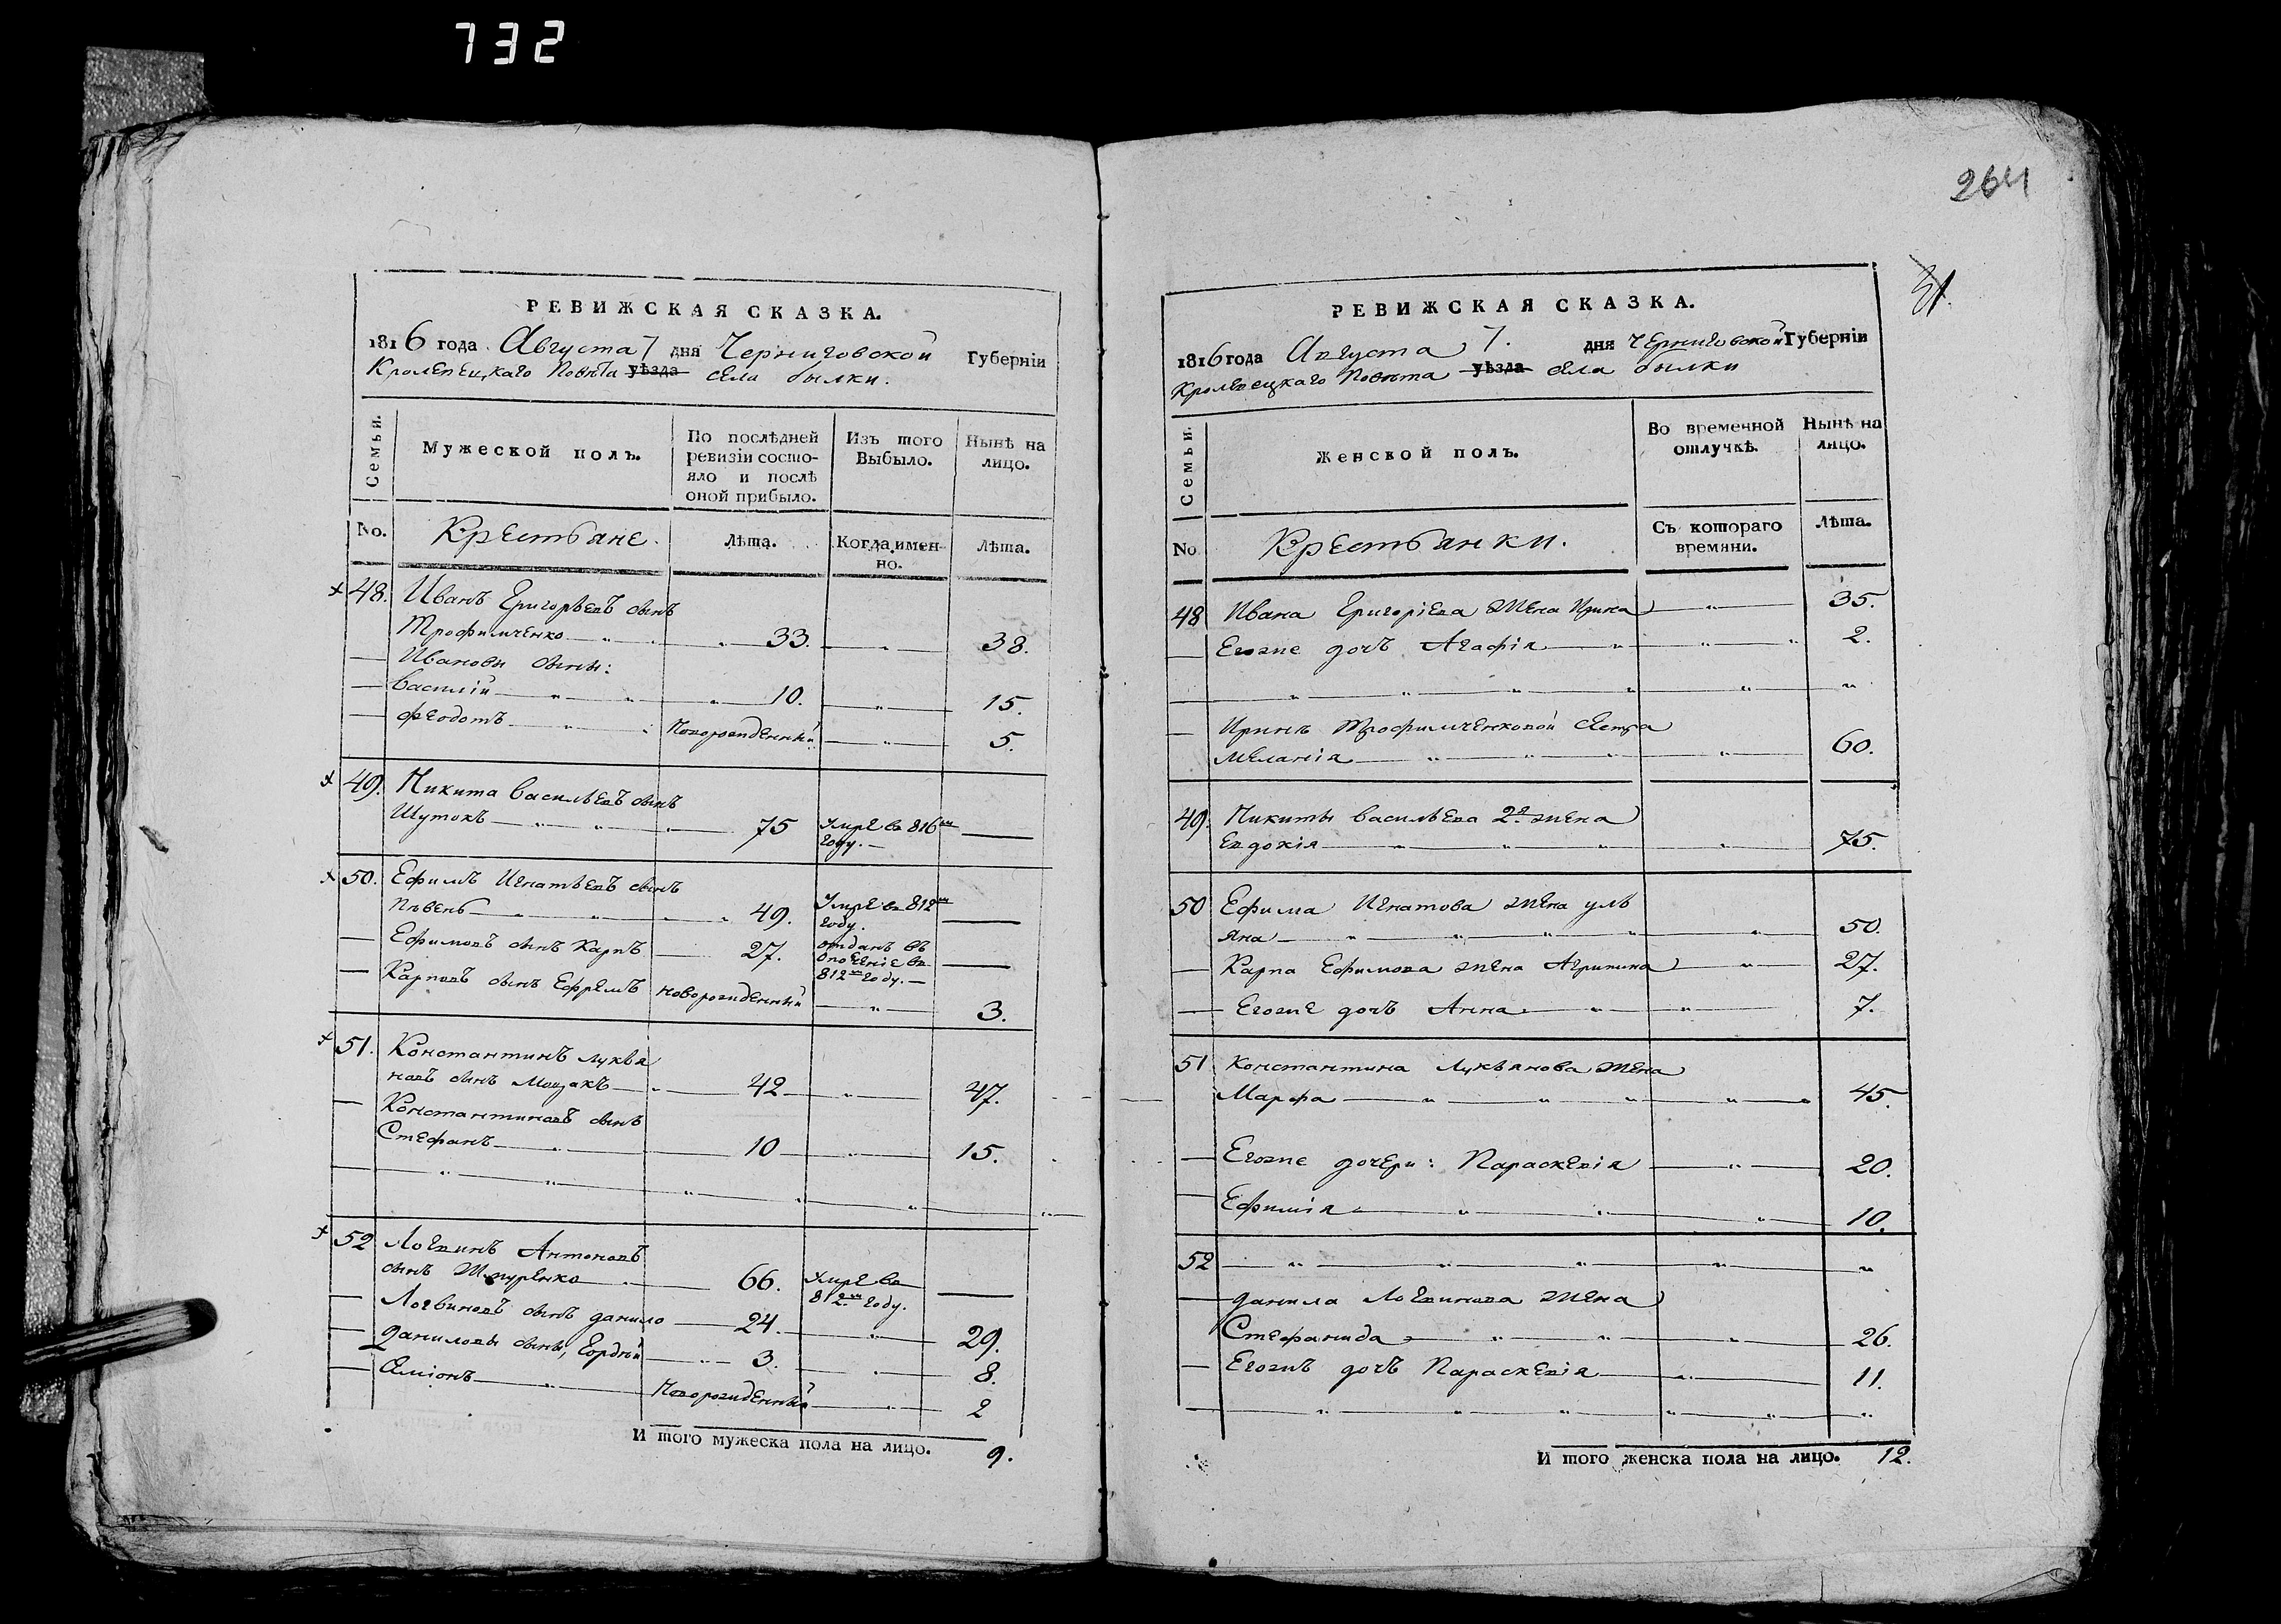 732
264
31.
РЕВИЖСКАЯ СКАЗКА.
1816 года Августа 7 дня Черниговской Губерніи
Кролевецкаго Повѣта уѣзда села былки.
Семьи.
Мужеской полъ.
По послѣдней ревизіи состояло и послѣ оной прибыло.
Изъ того Выбыло.
Нынѣ на лицо.
No.
Крестьяне.
Лѣта.
Когда именно.
Лѣта.
48. Иванъ Григорьевъ сынъ
Трофимченко 33. 38.
Ивановы сыны:
Василій 10. 15.
Феодотъ Новорожденный 5.
49. Никита Васильевъ сынъ
Шутокъ 75 Умре въ 816м году. —
50. Ефимъ Игнатьевъ сынъ
Пѣвень 49. Умре въ 812м году. —
Ефимовъ сынъ Карпъ 27. отданъ въ ополченіе въ 812м году. —
Карповъ сынъ Ефремъ новорожденный 3.
51. Константинъ лукья
новъ сынъ 42 47.
Константиновъ сынъ
Стефанъ 10 15.
52 Логвинъ Антоновъ
сынъ 66. Умре въ 812м году. —
Логвиновъ сынъ данило 24. 29.
даниловы сыны, Гордѣй 3. 8.
Сѣміонъ Новорожденный 2
И того мужеска пола на лицо. 9.
РЕВИЖСКАЯ СКАЗКА.
1816 года Августа 7. дня Черниговской Губерніи
Кролевецкаго Повѣта уѣзда села былки
Семьи.
Женской полъ.
Во временной отлучкѣ.
Нынѣ на лицо.
No
Крестьянки.
Съ котораго времяни.
Лѣта.
48 Ивана Григоріева жена Ирина 35.
Егоже дочь Агафія 2.
Иринѣ Трофимченковой сестра
Меланія 60.
49. Никиты Васильева 2я жена
Евдокія 75.
50 Ефима Игнатова жена уль
яна 50.
Карпа Ефимова жена Агрипина 27.
Егоже дочь Анна 7.
51 Константина Лукьянова жена
Марфа 45.
Егоже дочери: Параскевія 20.
Ефимія 10.
52
данила Логвинова жена
Стефанида 26.
Егожъ дочь Параскевія 11.
И того женска пола на лицо. 12.